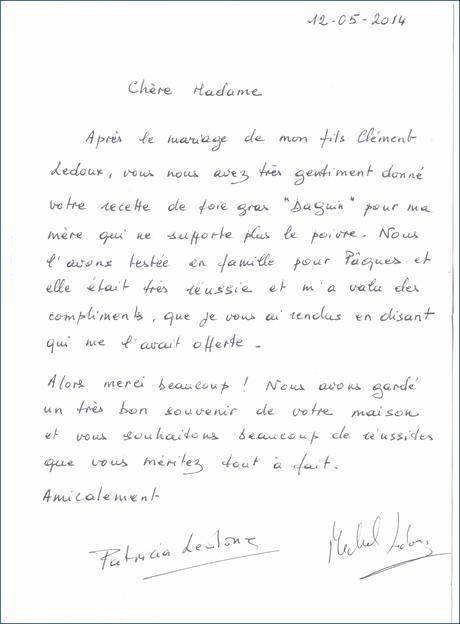 12-05-2014
Chère Madame
Après le mariage de mon fils Clément
Ledoux, vous nous avez très gentiment donné
votre recette de foie gras "Daguin" pour ma
mère qui ne supporte plus le poivre. Nous
l'avons testée en famille pour Pâques et
elle était très réussie et m'a valu des
compliments, que je vous ai rendus en disant
qui me l'avait offerte -
Alors merci beaucoup ! Nous avons gardé
un très bon souvenir de votre maison
et vous souhaitons beaucoup de réussites
que vous méritez tout à fait.
Amicalement
Patricia Ledoux
Michel Ledoux